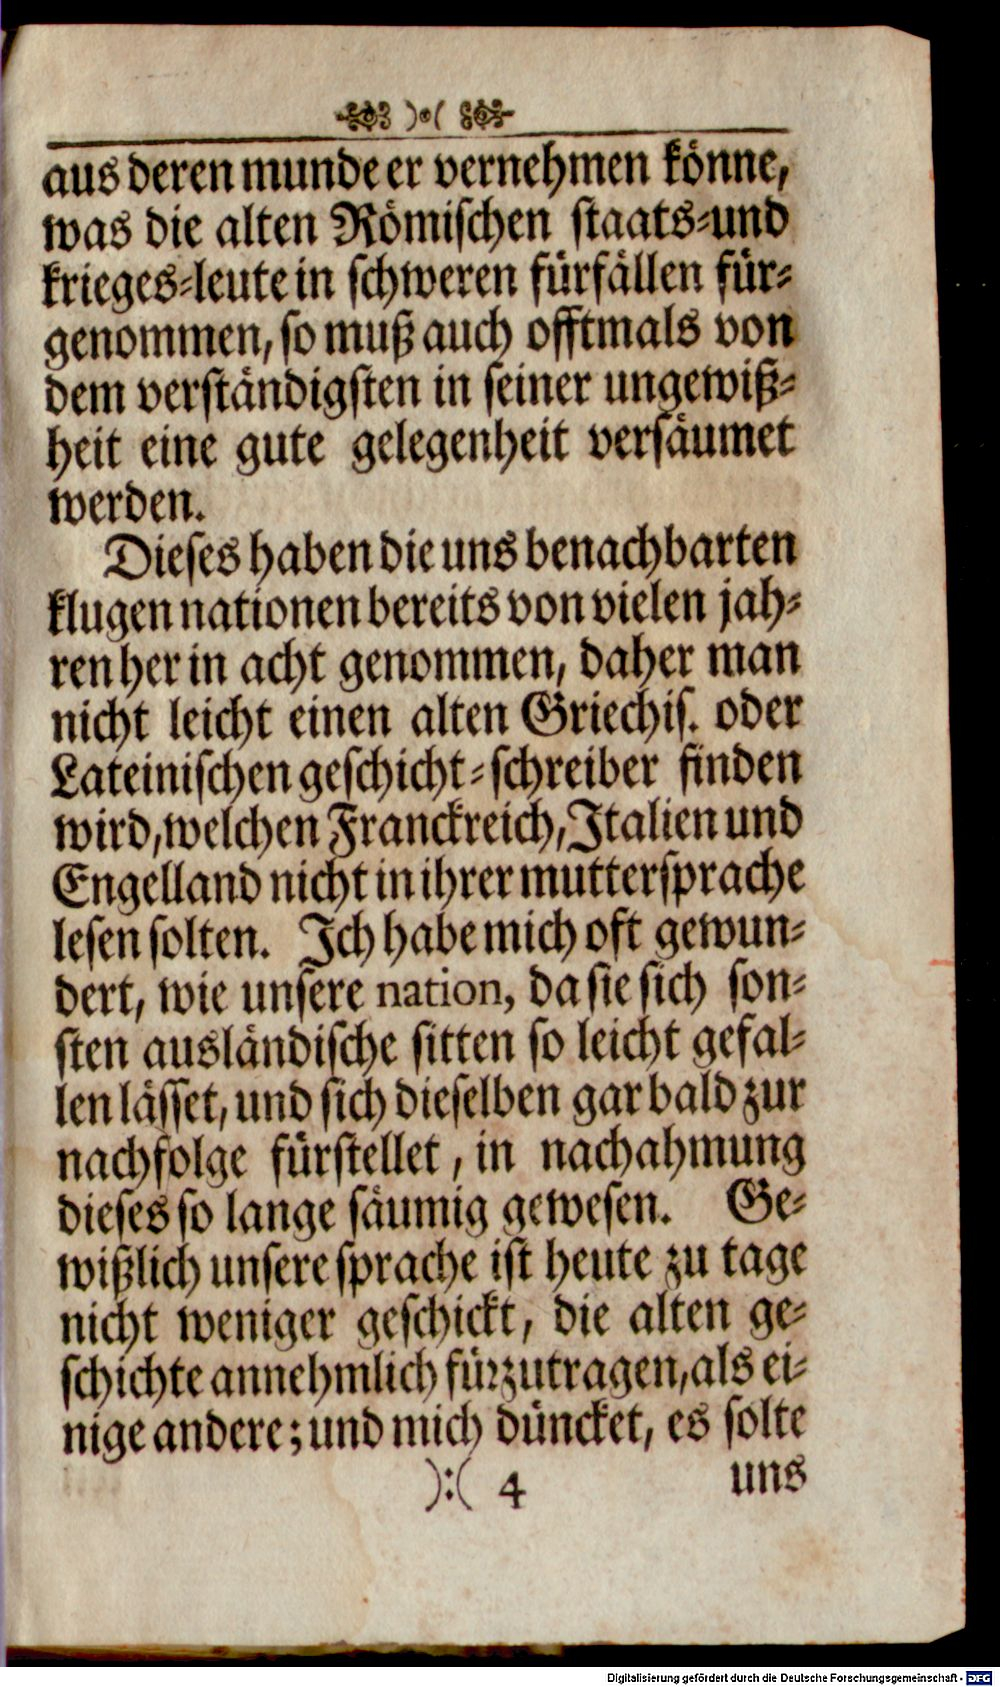 aus deren munde er vernehmen könne,
was die alten Römischen staats-und
krieges-leute in schweren fürfällen für-
genommen, so muß auch offtmals von
dem verständigsten in seiner ungewiß-
heit eine gute gelegenheit versäumet
werden.
Dieses haben die uns benachbarten
klugen nationen bereits von vielen jah-
ren her in acht genommen, daher man
nicht leicht einen alten Griechis. oder
Lateinischen geschicht-schreiber finden
wird, welchen Franckreich, Italien und
Engelland nicht in ihrer muttersprache
lesen solten. Ich habe mich oft gewun-
dert, wie unsere nation, da sie sich son-
sten ausländische sitten so leicht gefal-
len lässet, und sich dieselben gar bald zur
nachfolge fürstellet, in nachahmung
dieses so lange säumig gewesen. Ge-
wißlich unsere sprache ist heute zu tage
nicht weniger geschickt, die alten ge-
schichte annehmlich fürzutragen, als ei-
nige andere; und mich düncket, es solte
):( 4 uns
Digitalisierung gefördert durch die Deutsche Forschungsgemeinschaft - DFG